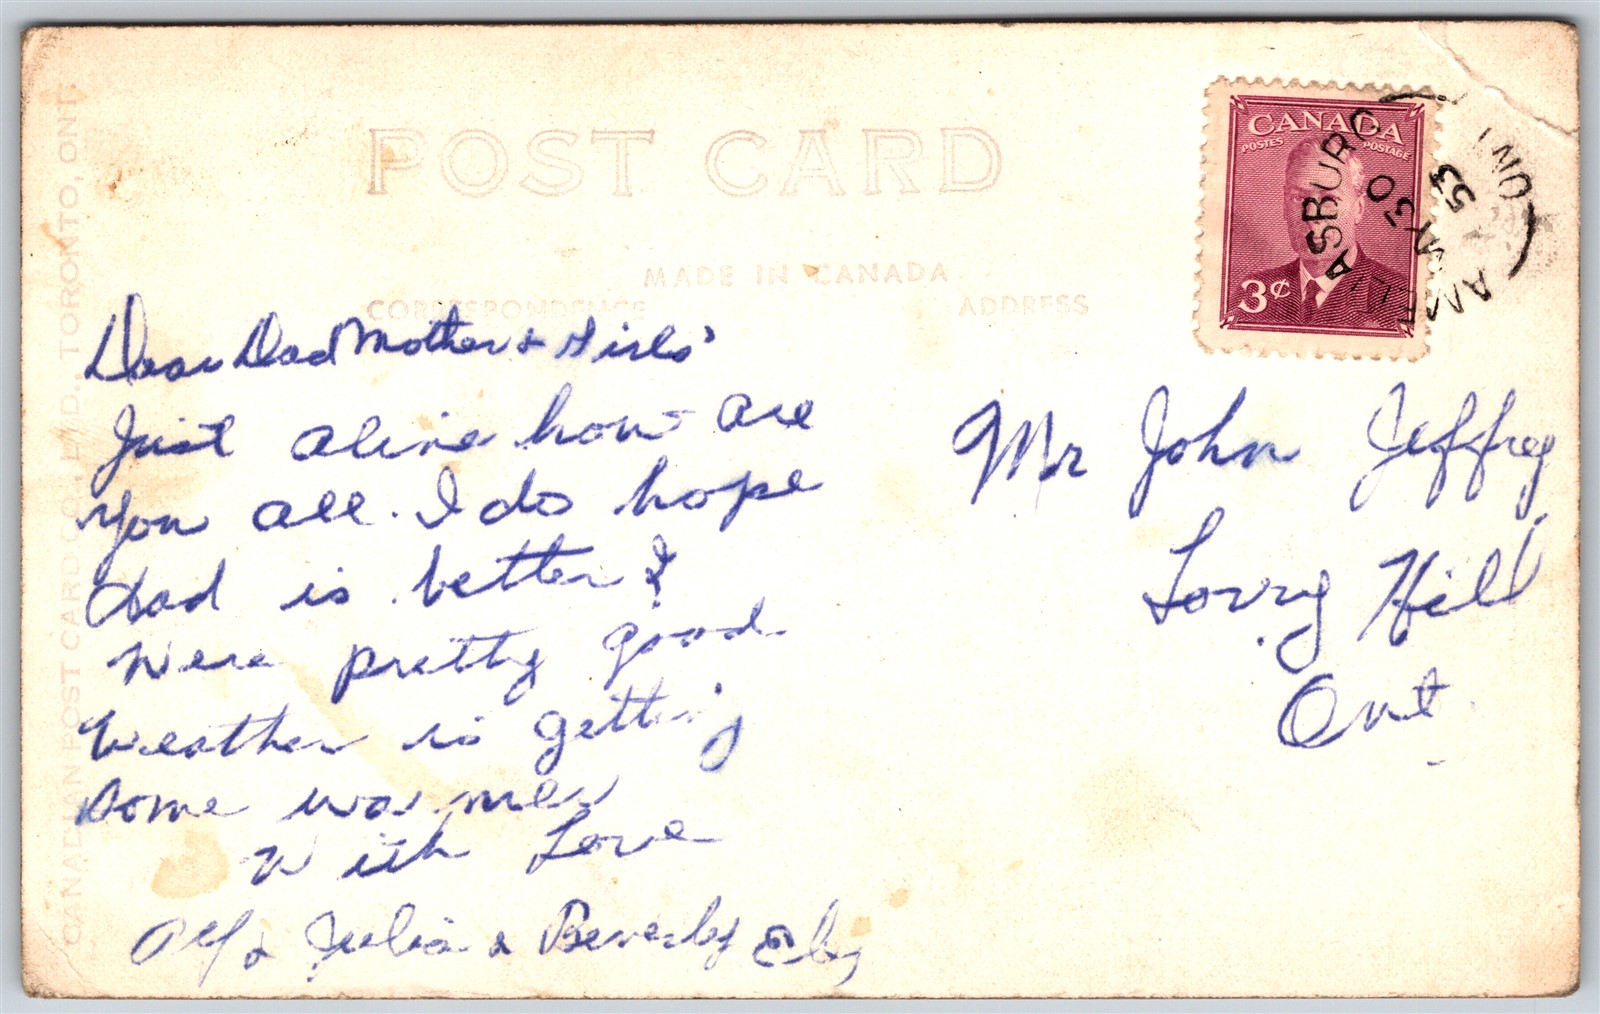 POST CARD
MADE IN CANADA
CORRESPONDENCE
ADDRESS
CANADIAN POST CARD CO. LTD., TORONTO, ONT.
CANADA
POSTES POSTAGE
3¢
AMELIASBURG
30
53
ONT
Dear Dad Mother & Girls'
Just aline how are
You all. I do hope
Dad is better &
Were pretty good
Weather is getting
some warmer
With Love
Alf & Julia & Beverley Eby
Mr John Jeffrey
Lorry Hill
Ont.